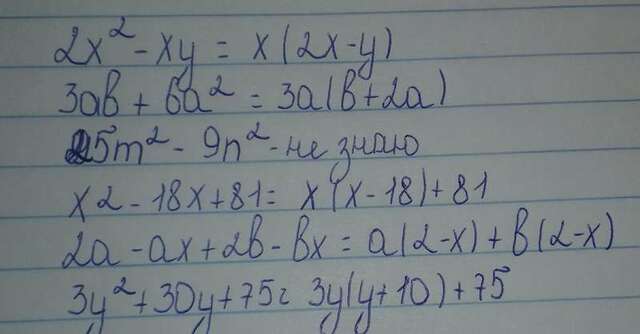 2x² - xy = x(2x-y)
3ab + 6a² = 3a(b+2a)
25m² - 9n² - не знаю
x2 - 18x + 81 = x(x-18) + 81
2a - ax + 2b - bx = a(2-x) + b(2-x)
3y² + 30y + 75 = 3y(y+10) + 75